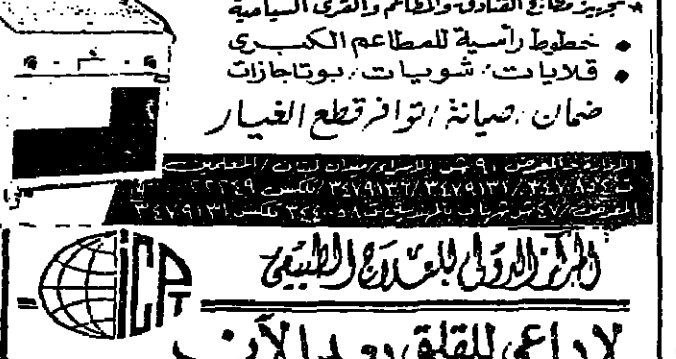 * تجهيز مطابخ الفنادق والمطاعم والقرى السياحية
• خطوط رأسية للمطاعم الكبرى
• قلايات، شوايات، بوتاجازات
ضمان، صيانة، توافر قطع الغيار
الإدارة والمعرض ٩١ ش /ميدان لبنان / المهندسين
٣٤٧٩١٣١/ ٣٤٧٩١٣٦/ تلكس
المعرض/ ٤٧ ش شهاب بالمهندسين ت ٣٤٤٠٠٥٨ فاكس ٣٤٧٩١٣١
المركز الدولي للعلاج الطبيعي
ICPT
لاداعي للقلق بعد الآن